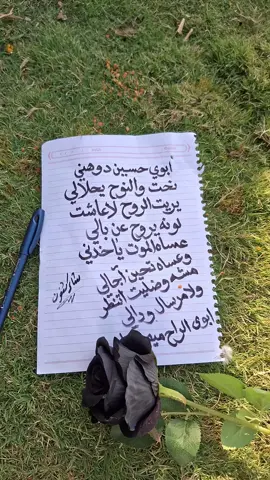 ابوي حسين دوهني
بخت والنوح يحلالي
يريت الروح لاعاشت
لونه يروح عن بالي
عساه الموت ياخذني
وعساه تحين آجالي
مشه وضليت انتظر
ولا مرسال ودالي
ابوي الراح